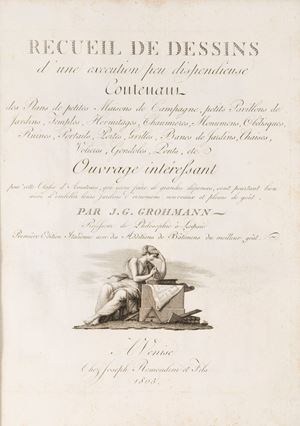 RECUEIL DE DESSINS
d'une execution peu dispendieuse
Contenant
des Plans de petites Maisons de Campagne, petits Pavillons de
Jardins, Temples, Hermitages, Chaumieres, Monumens, Obelisques,
Ruines, Portails, Portes, Grilles, Bancs de Jardins, Chaises,
Volieres, Gondoles, Ponts, etc
Ouvrage intéressant
pour cette Classe d'Amateurs, qui sans faire de grandes dépenses, sont pourtant bien
aises d'embelir leurs jardins d'ornemens nouveaux et pleins de goût
PAR J. G. GROHMANN
Professeur de Philosophie à Leipsic
Première Edition Italienne avec des Additions de Bâtimens du meilleur goût
A Venise
Chez Joseph Remondini et Fils
1805